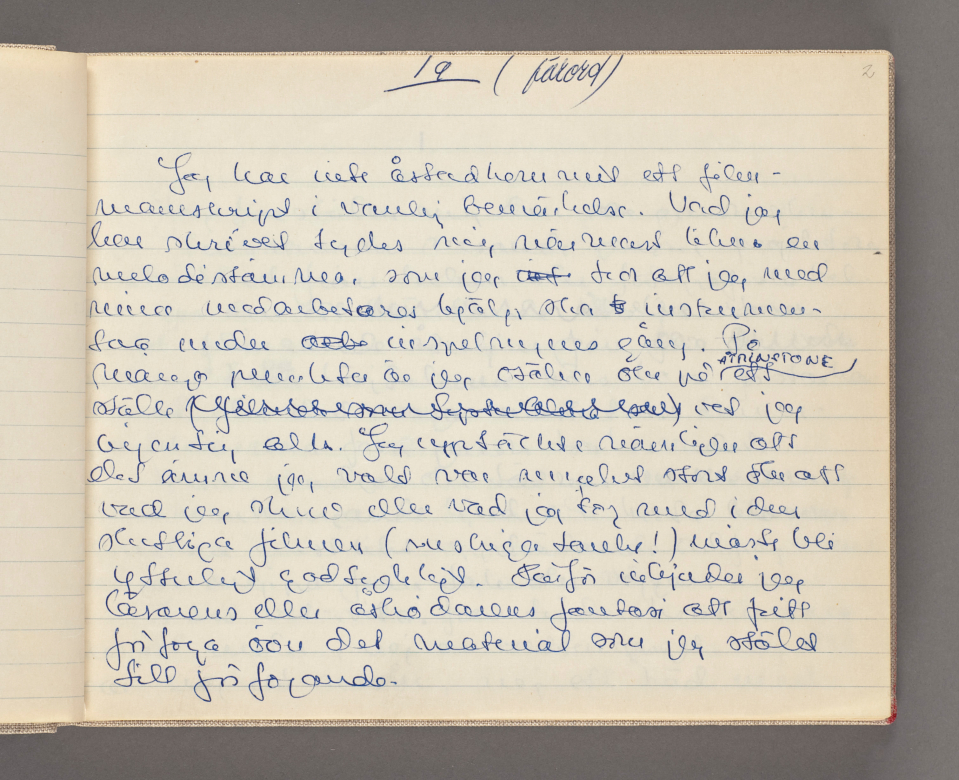 1a (förord)
2
Jag har inte åstadkommit ett film-
manuskript i vanlig bemärkelse. Vad jag
har skrivit tycks mig närmast likna en
melodistämma, som jag tror att jag med
mina medarbetares hjälp ska instrumen-
tera under inspelningens gång. På
många punkter är jag osäker och på ÅTMINSTONE ett
ställe vet jag
ingenting alls. Jag upptäckte nämligen att
det ämne jag valt var mycket stort och att
vad jag skrev eller vad jag tog med i den
slutliga filmen (ruskiga tanke!) måste bli
ytterligt godtyckligt. Därför inbjuder jag
läsarens eller åskådarens fantasi att fritt
förfoga över det material som jag ställt
till förfogande.